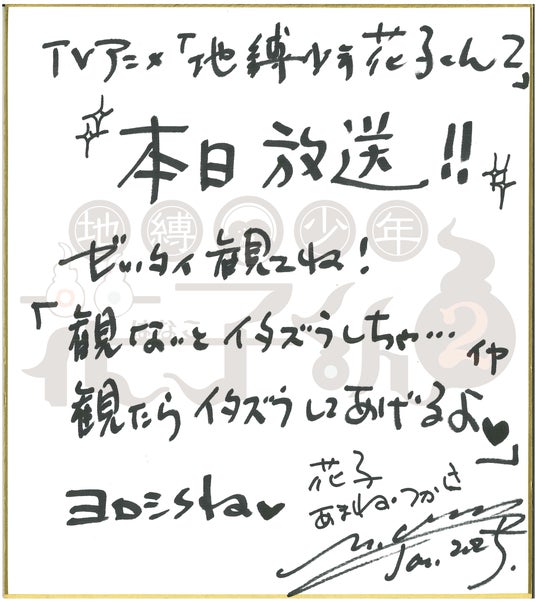 TVアニメ「地縛少年花子くん2」
本日放送!!
ゼッタイ観てね!
「観ないとイタズラしちゃ…
イヤ
観たらイタズラしてあげるよ♥」
ヨロシSね♥
花子
あまね・つかさ
Jan. 2025.
地縛少年
はなこ
花子くん2